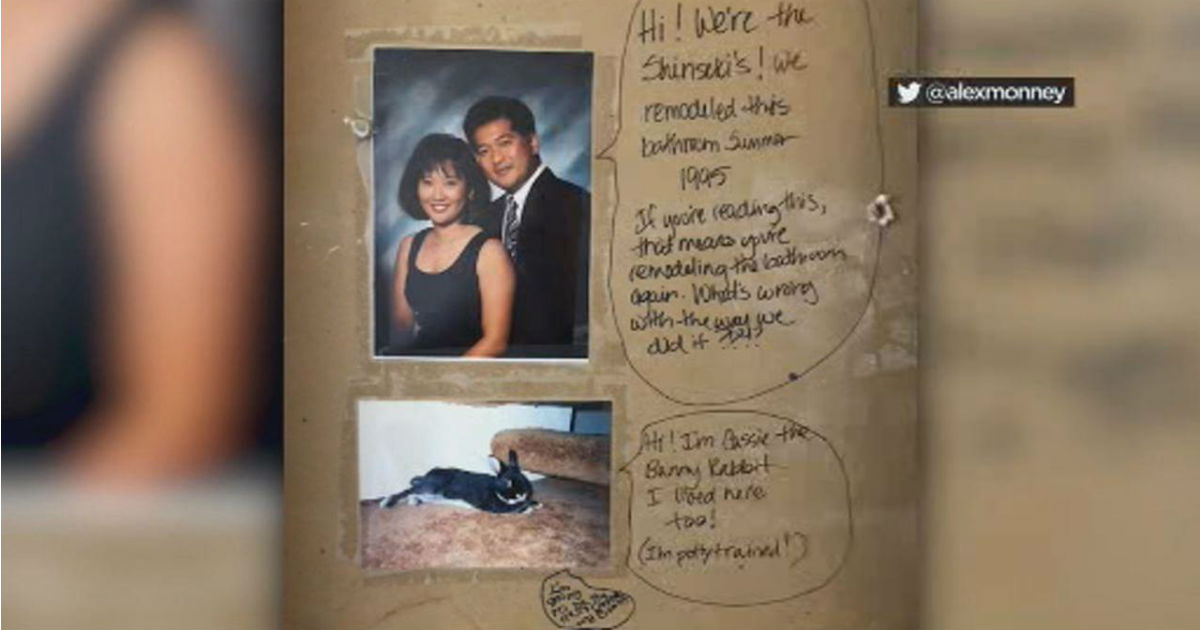 Hi! We're the
Shinseki's! We
remodeled this
bathroom Summer
1995
If you're reading this,
that means you're
remodeling the bathroom
again. What's wrong
with the way we
did it ?!?!?
@alexmonney
Hi! I'm Cassie the
Bunny Rabbit
I lived here
too!
(I'm potty trained!)